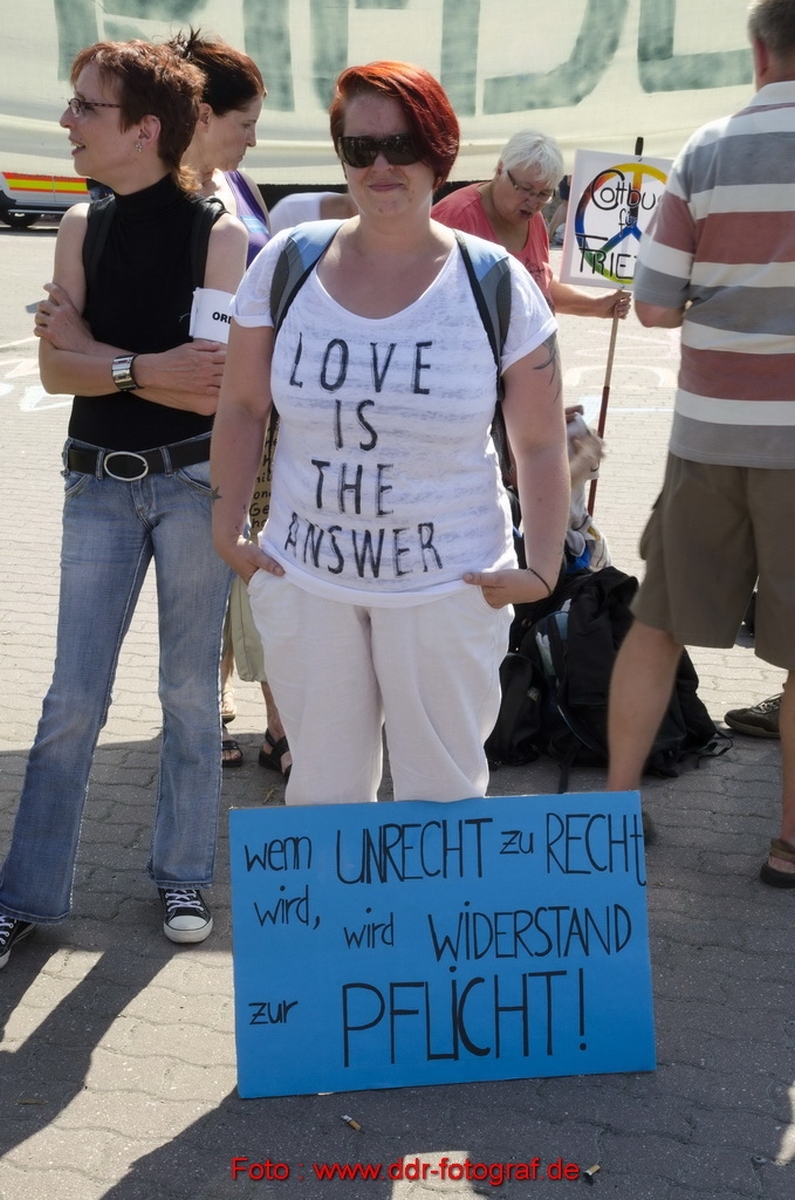 Cottbus
für
FRIE
ORD
LOVE
IS
THE
ANSWER
wenn UNRECHT zu RECHt
wird, wird WiDERSTAND
zur PFLiCHT!
Foto : www.ddr-fotograf.de